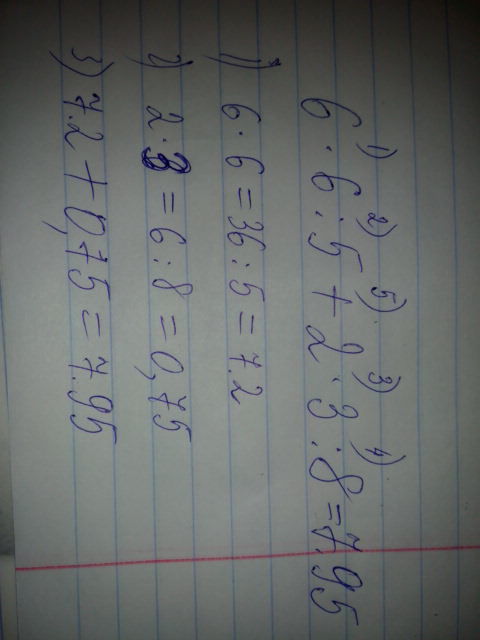 1) 2) 5) 3) 4)
6 · 6 : 5 + 2 · 3 : 8 = 7.95
1) 6 · 6 = 36 : 5 = 7.2
2) 2 · 3 = 6 : 8 = 0,75
3) 7.2 + 0,75 = 7.95